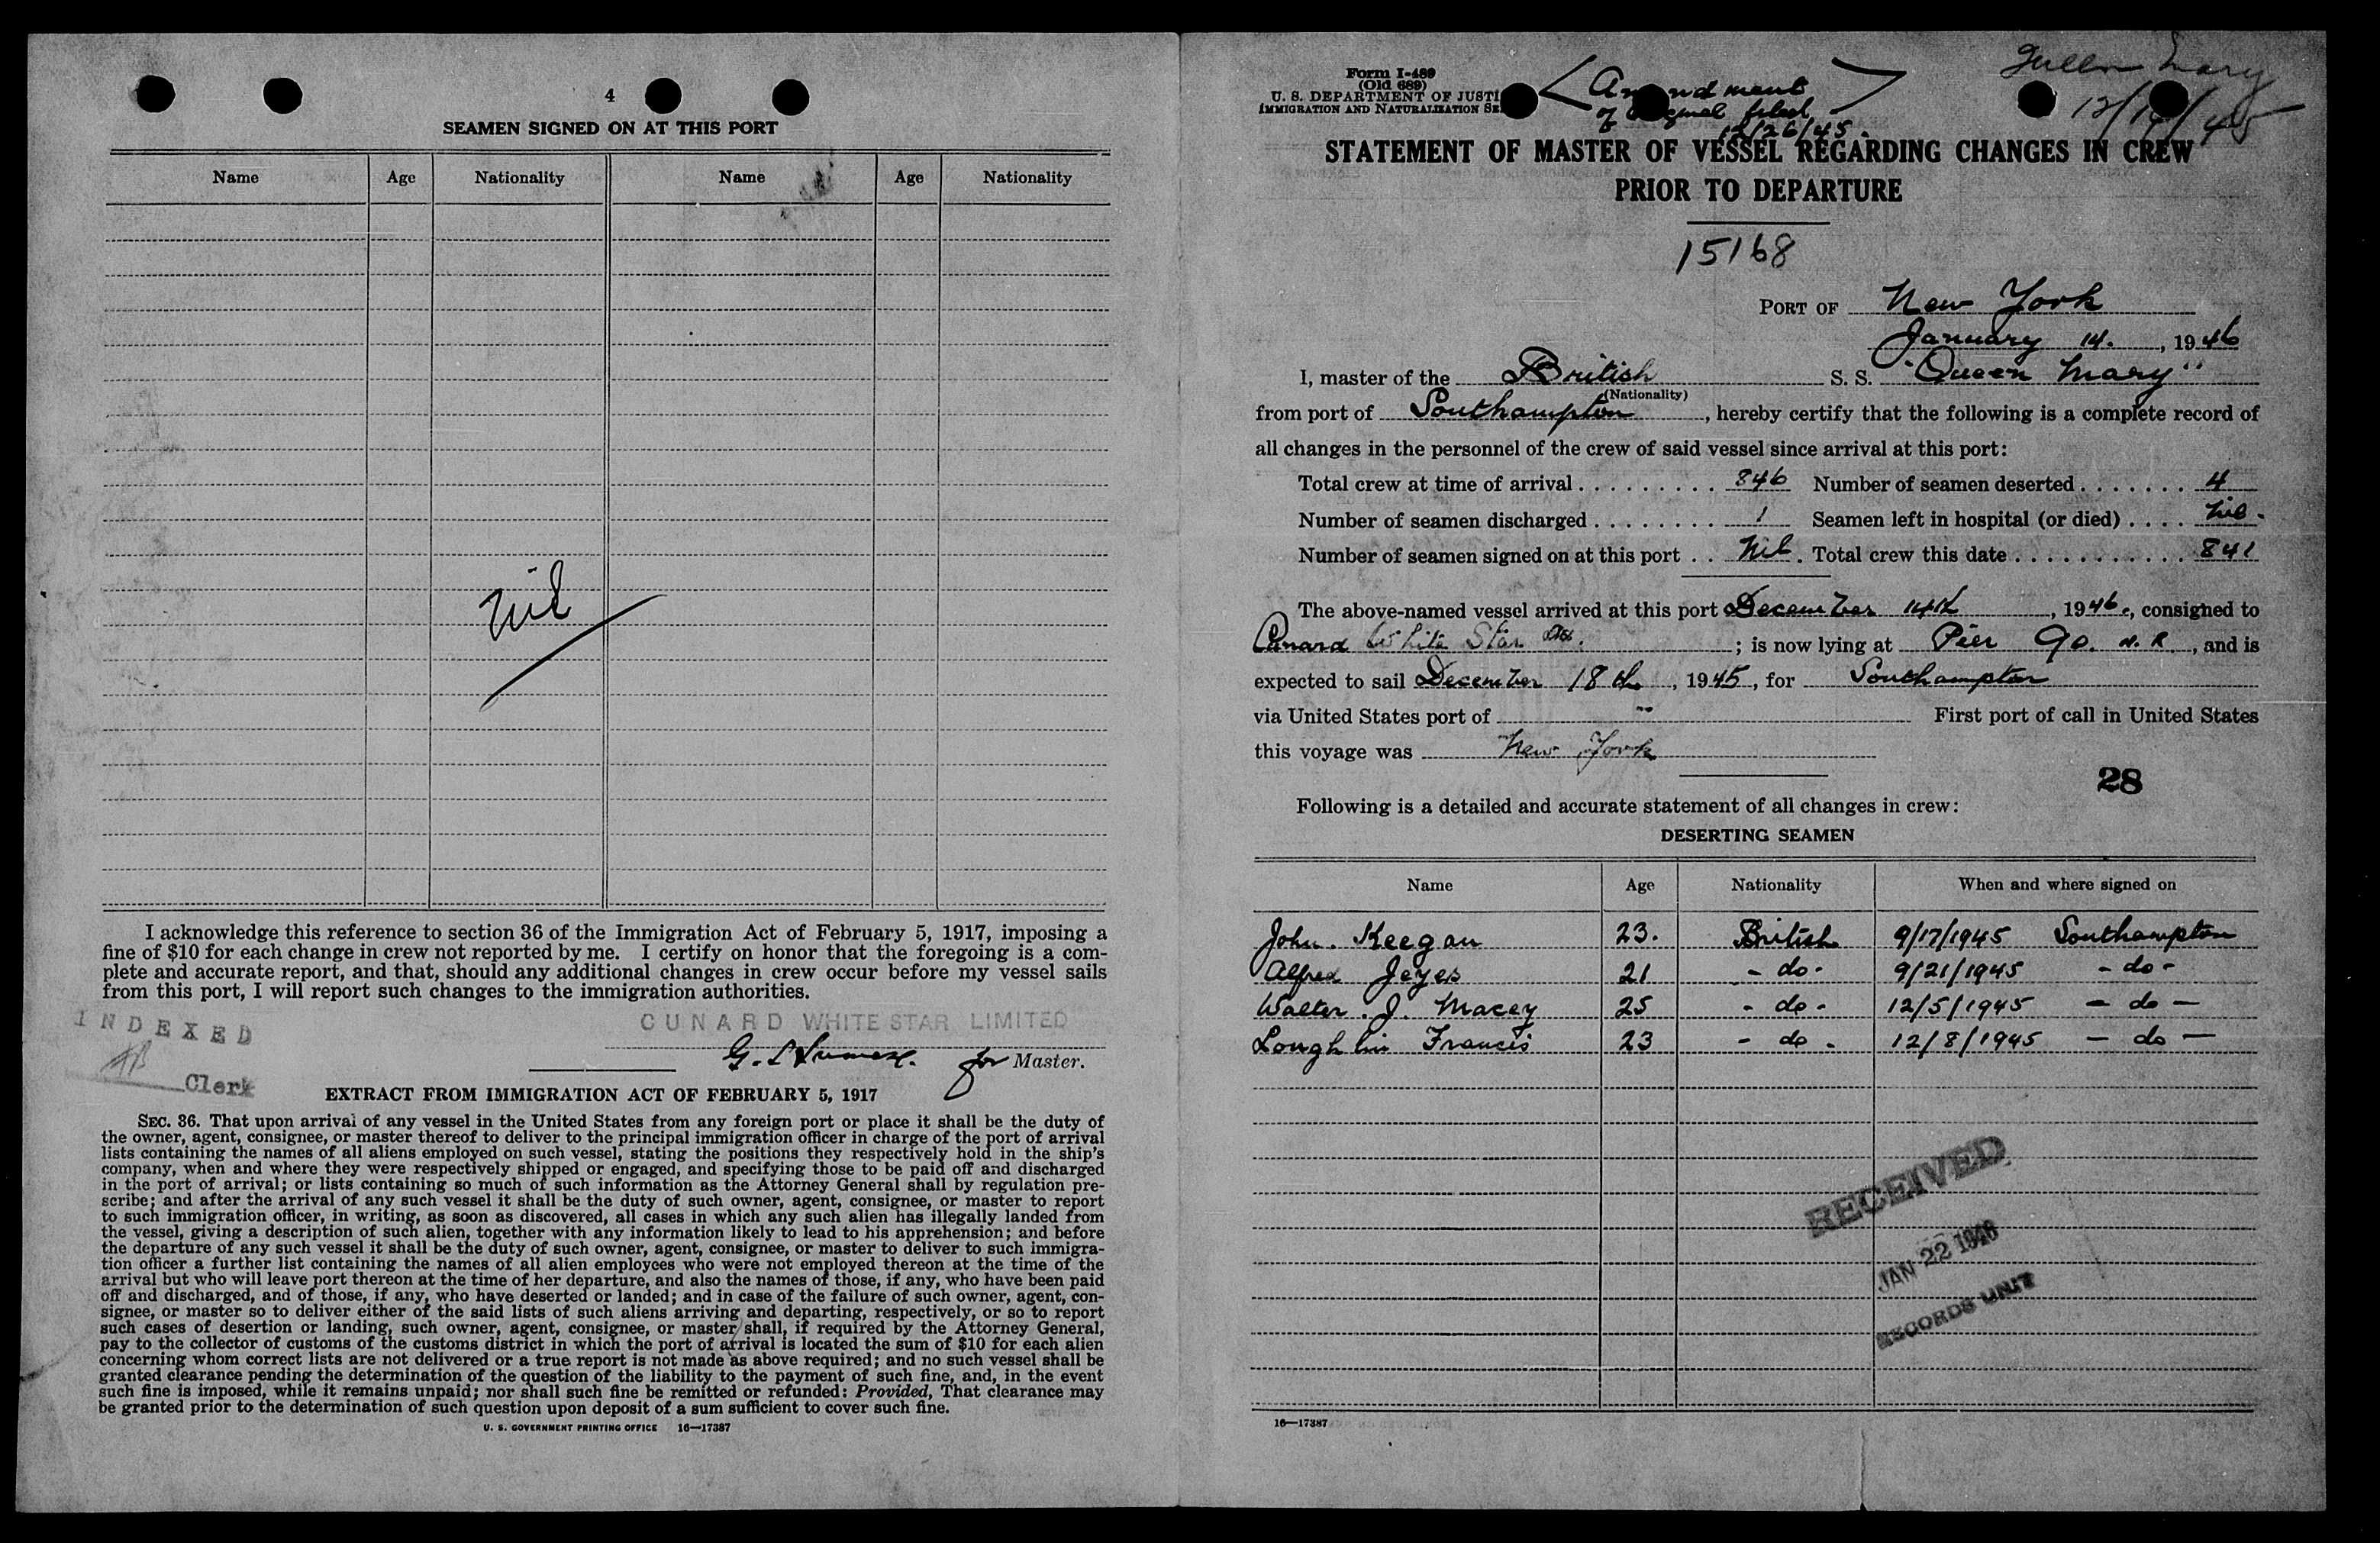 4
SEAMEN SIGNED ON AT THIS PORT
Name Age Nationality Name Age Nationality
Nil
I acknowledge this reference to section 36 of the Immigration Act of February 5, 1917, imposing a
fine of $10 for each change in crew not reported by me. I certify on honor that the foregoing is a com-
plete and accurate report, and that, should any additional changes in crew occur before my vessel sails
from this port, I will report such changes to the immigration authorities.
INDEXED
CUNARD WHITE STAR LIMITED
for Master.
Clerk
EXTRACT FROM IMMIGRATION ACT OF FEBRUARY 5, 1917
SEC. 36. That upon arrival of any vessel in the United States from any foreign port or place it shall be the duty of
the owner, agent, consignee, or master thereof to deliver to the principal immigration officer in charge of the port of arrival
lists containing the names of all aliens employed on such vessel, stating the positions they respectively hold in the ship's
company, when and where they were respectively shipped or engaged, and specifying those to be paid off and discharged
in the port of arrival; or lists containing so much of such information as the Attorney General shall by regulation pre-
scribe; and after the arrival of any such vessel it shall be the duty of such owner, agent, consignee, or master to report
to such immigration officer, in writing, as soon as discovered, all cases in which any such alien has illegally landed from
the vessel, giving a description of such alien, together with any information likely to lead to his apprehension; and before
the departure of any such vessel it shall be the duty of such owner, agent, consignee, or master to deliver to such immigra-
tion officer a further list containing the names of all alien employees who were not employed thereon at the time of the
arrival but who will leave port thereon at the time of her departure, and also the names of those, if any, who have been paid
off and discharged, and of those, if any, who have deserted or landed; and in case of the failure of such owner, agent, con-
signee, or master so to deliver either of the said lists of such aliens arriving and departing, respectively, or so to report
such cases of desertion or landing, such owner, agent, consignee, or master shall, if required by the Attorney General,
pay to the collector of customs of the customs district in which the port of arrival is located the sum of $10 for each alien
concerning whom correct lists are not delivered or a true report is not made as above required; and no such vessel shall be
granted clearance pending the determination of the question of the liability to the payment of such fine, and, in the event
such fine is imposed, while it remains unpaid; nor shall such fine be remitted or refunded: Provided, That clearance may
be granted prior to the determination of such question upon deposit of a sum sufficient to cover such fine.
U. S. GOVERNMENT PRINTING OFFICE 16—17387
Form I-489
(Old 689)
U. S. DEPARTMENT OF JUSTI
IMMIGRATION AND NATURALIZATION SE
Amendment
of original filed
12/26/45.
Queen Mary
12/14/45
STATEMENT OF MASTER OF VESSEL REGARDING CHANGES IN CREW
PRIOR TO DEPARTURE
15168
PORT OF New York
January 14. , 1946
I, master of the British S. S. "Queen Mary"
(Nationality)
from port of Southampton , hereby certify that the following is a complete record of
all changes in the personnel of the crew of said vessel since arrival at this port:
Total crew at time of arrival . . . . . . . . . 846 Number of seamen deserted . . . . . . . 4
Number of seamen discharged . . . . . . . . 1 Seamen left in hospital (or died) . . . . Nil.
Number of seamen signed on at this port . . Nil . Total crew this date . . . . . . . . . . . 841
The above-named vessel arrived at this port December 14th , 1946., consigned to
Cunard White Star Ltd. ; is now lying at Pier 90. N. R. , and is
expected to sail December 18th , 1945, for Southampton
via United States port of -- First port of call in United States
this voyage was New York
28
Following is a detailed and accurate statement of all changes in crew:
DESERTING SEAMEN
Name Age Nationality When and where signed on
John. Keegan 23. British 9/17/1945 Southampton
Alfred Jeyes 21 - do - 9/21/1945 - do -
Walter. J. Macey 25 - do - 12/5/1945 - do -
Loughlin Francis 23 - do - 12/8/1945 - do -
RECEIVED
JAN 22 1946
RECORDS UNIT
16—17387